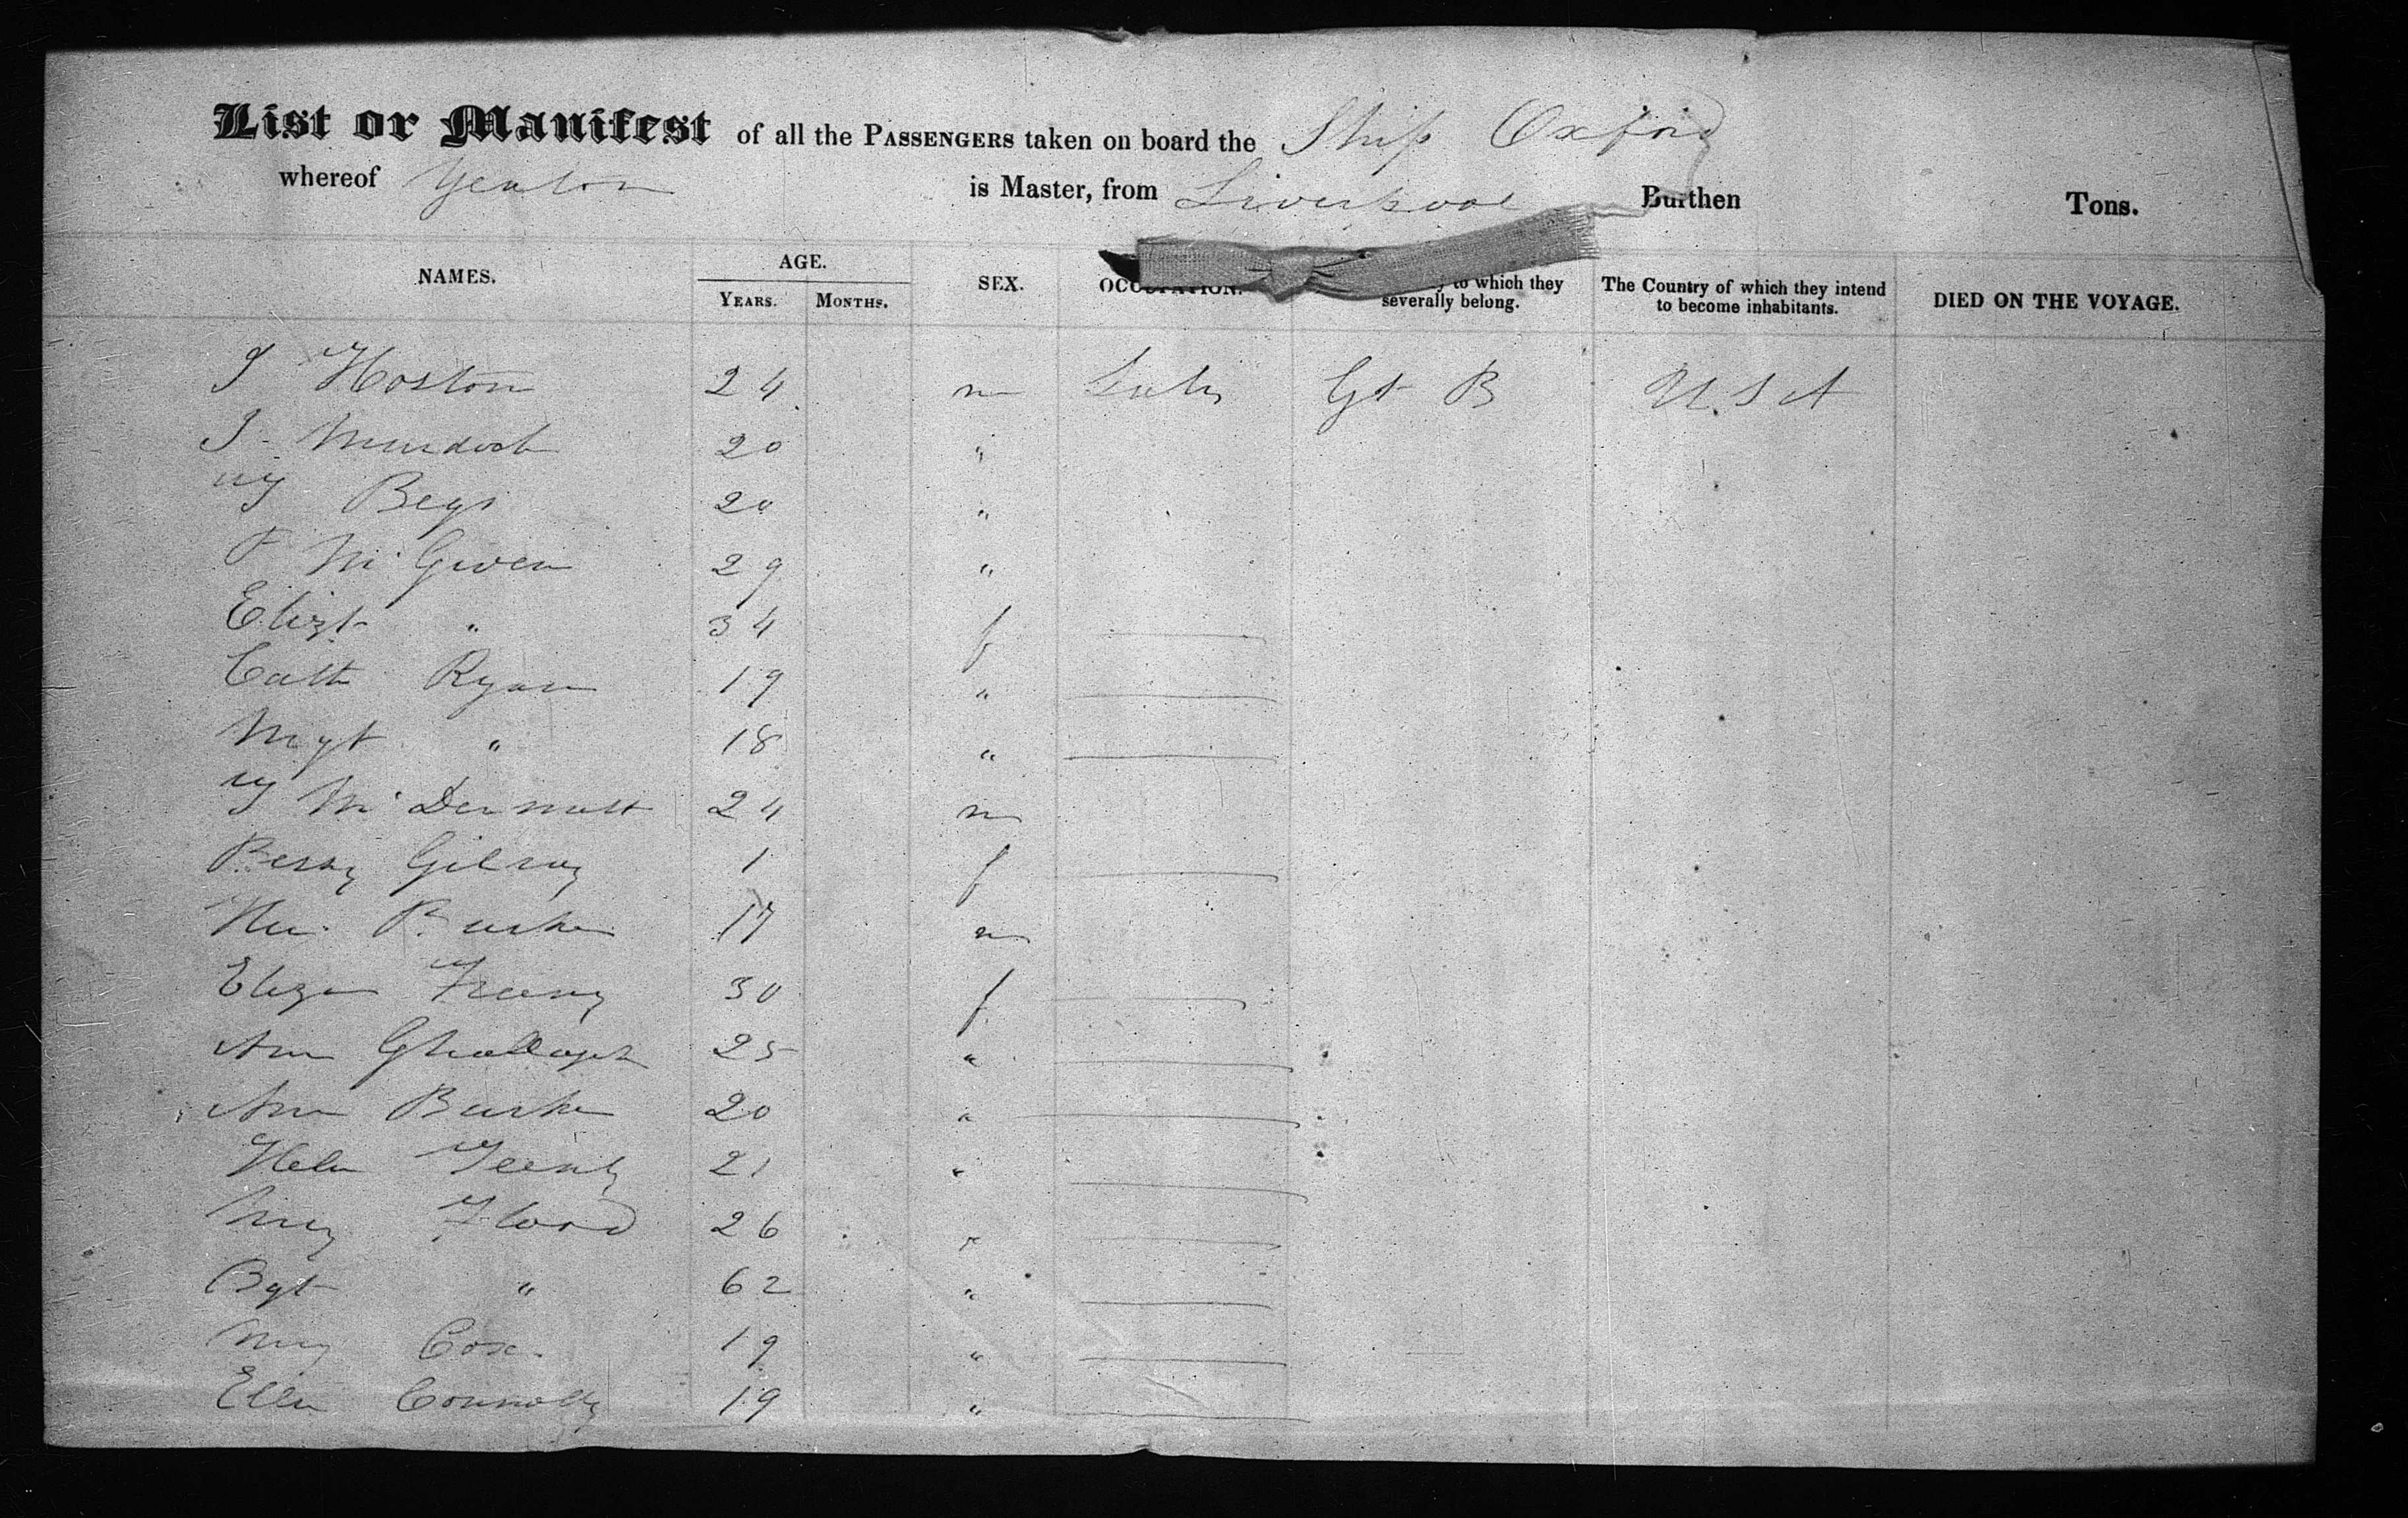 List or Manifest of all the PASSENGERS taken on board the Ship Oxford
whereof Yeaton is Master, from Liverpool Burthen Tons.
NAMES. AGE. YEARS. MONTHS. SEX. OCCUPATION. to which they severally belong. The Country of which they intend to become inhabitants. DIED ON THE VOYAGE.
J Hoston 24 m Gt B U.S A
J Murdock 20 "
Begs 20 "
P Mc Given 29 "
Elizt " 34 f
Cath Ryan 19 "
Mgt " 18 "
Mc Dermott 24 m
Bessy Gilroy 1 f
Burke 17 m
Eliza Feeny 30 f
Ann Ghallagh 25 "
Ann Burke 20 "
Helen 21 "
Mry Flood 26 "
Bgt " 62 "
Mry Cox. 19 "
Ellen Connolly 19 "